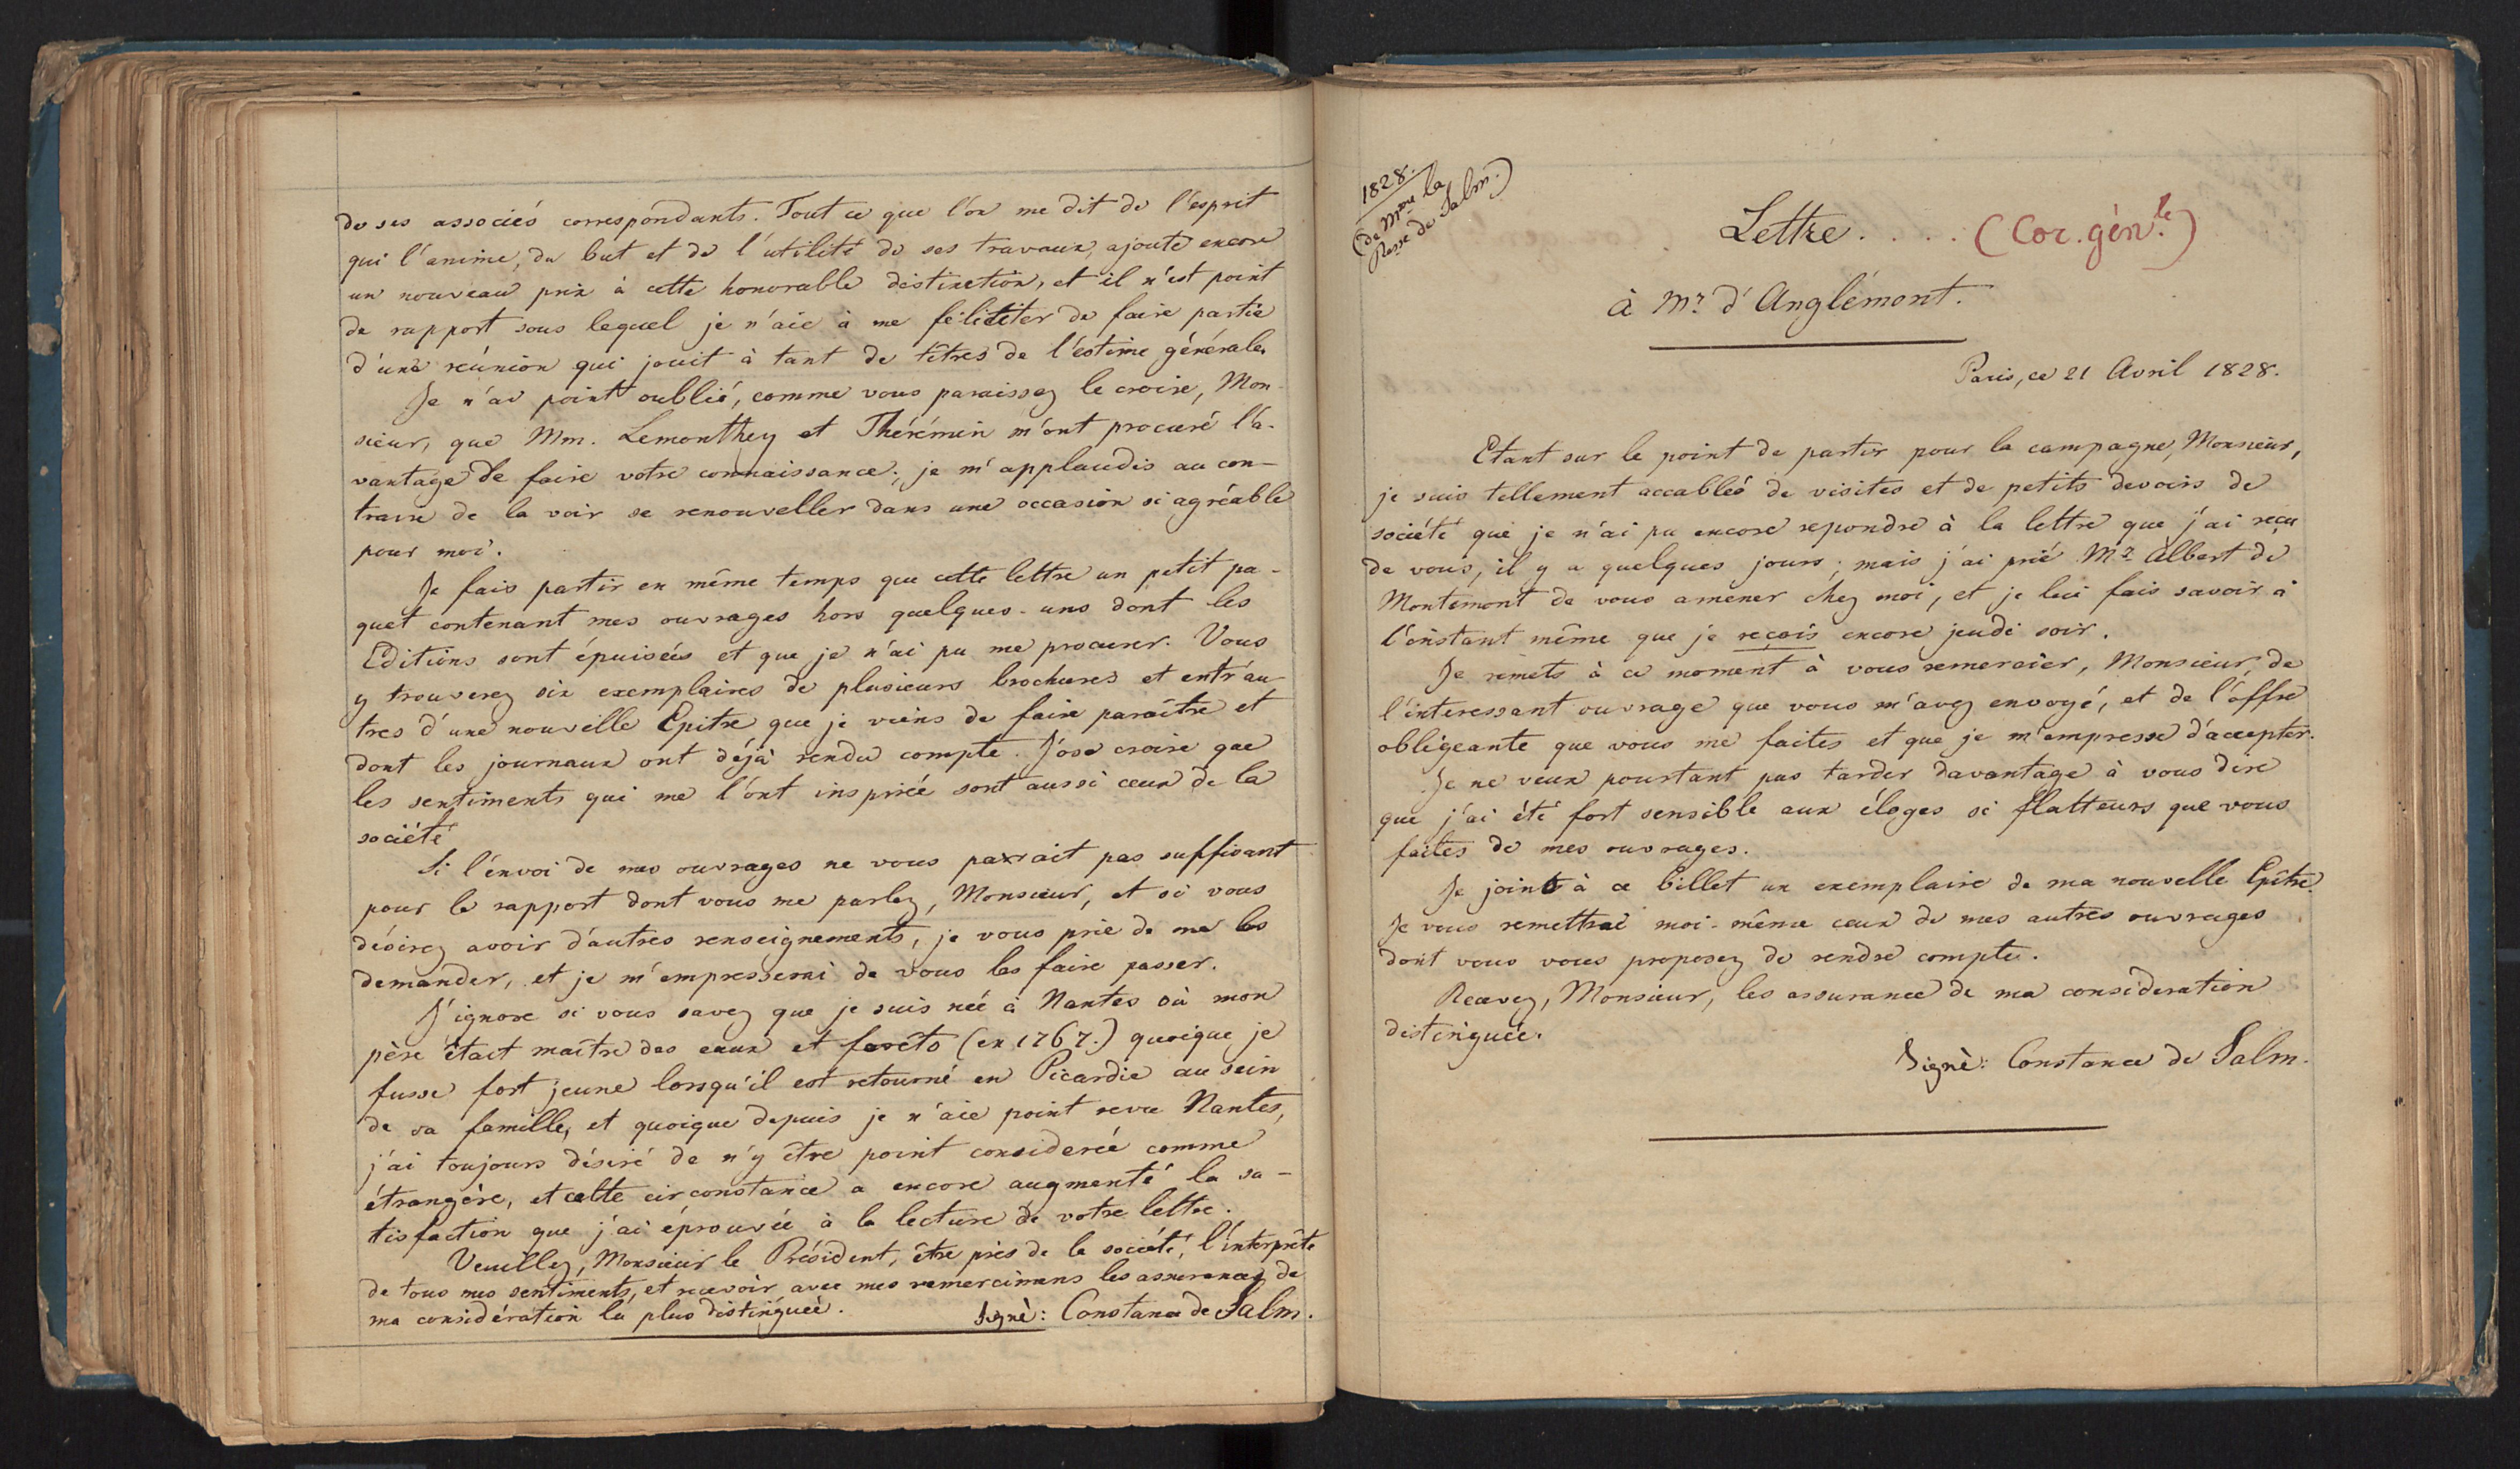 de ses associés correspondants. Tout ce que l'on me dit de l'esprit
qui l'anime, du but et de l'utilité de ses travaux, ajoute encore
un nouveau prix à cette honorable distinction, et il n'est point
de rapport sous lequel je n'aie à me féliciter de faire partie
d'une réunion qui jouit à tant de titres de l'estime générale.
Je n'ai point oublié, comme vous paraissez le croire, Mon-
sieur, que Mm. Lemonthey et Thérémin m'ont procuré l'a-
vantage de faire votre connaissance; je m'applaudis au con-
traire de la voir se renouveller dans une occasion si agréable
pour moi.
Je fais partir en même temps que cette lettre un petit pa-
quet contenant mes ouvrages hors quelques-uns dont les
Editions sont épuisées et que je n'ai pu me procurer. Vous
y trouverez six exemplaires de plusieurs brochures et entr'au-
tres d'une nouvelle Epitre que je viens de faire paraître et
dont les journaux ont déjà rendu compte. J'ose croire que
les sentiments qui me l'ont inspirée sont aussi ceux de la
société
Si l'envoi de mes ouvrages ne vous paxrait pas suffisant
pour le rapport dont vous me parlez, Monsieur, et si vous
désirez avoir d'autres renseignements, je vous prie de me les
demander, et je m'empresserai de vous les faire passer.
J'ignore si vous savez que je suis née à Nantes où mon
père était maître des eaux et forêts (en 1767.) quoique je
fusse fort jeune lorsqu'il est retourné en Picardie au sein
de sa famille, et quoique depuis je n'aie point revu Nantes,
j'ai toujours désiré de n'y être point considerée comme
étrangère, et cette circonstance a encore augmenté la sa-
tisfaction que j'ai éprouvée à la lecture de votre lettre.
Veuillez, Monsieur le Président, être près de la société, l'interprête
de tous mes sentiments, et recevoir avec mes remercimens les assurances de
ma considération la plus distinguée.
Signè: Constance de Salm.
1828.
(de Mme la
Psse de Salm.)
Lettre . . . . (Cor. gén.le)
à Mr. d'Anglémont.
Paris, ce 21 Avril 1828.
Etant sur le point de partir pour la campagne, Monsieur,
je suis tellement accablée de visites et de petits devoirs de
société que je n'ai pu encore repondre à la lettre que j'ai reçu
de vous, il y a quelques jours; mais j'ai prié Mr. Albert de
Montemont de vous amener chez moi, et je lui fais savoir à
l'instant même que je reçois encore jeudi soir.
Je remets à ce moment à vous remercier, Monsieur, de
l'interessant ouvrage que vous m'avez envoyé, et de l'offre
obligeante que vous me faites et que je m'empresse d'accepter.
Je ne veux pourtant pas tarder davantage à vous dire
que j'ai été fort sensible aux éloges si flatteurs que vous
faites de mes ouvrages.
Je joins à ce billet un exemplaire de ma nouvelle Epître.
Je vous remettrai moi-même ceux de mes autres ouvrages
dont vous vous proposez de rendre compte.
Recevez, Monsieur, les assurance de ma consideration
distinguée.
Signè: Constance de Salm.